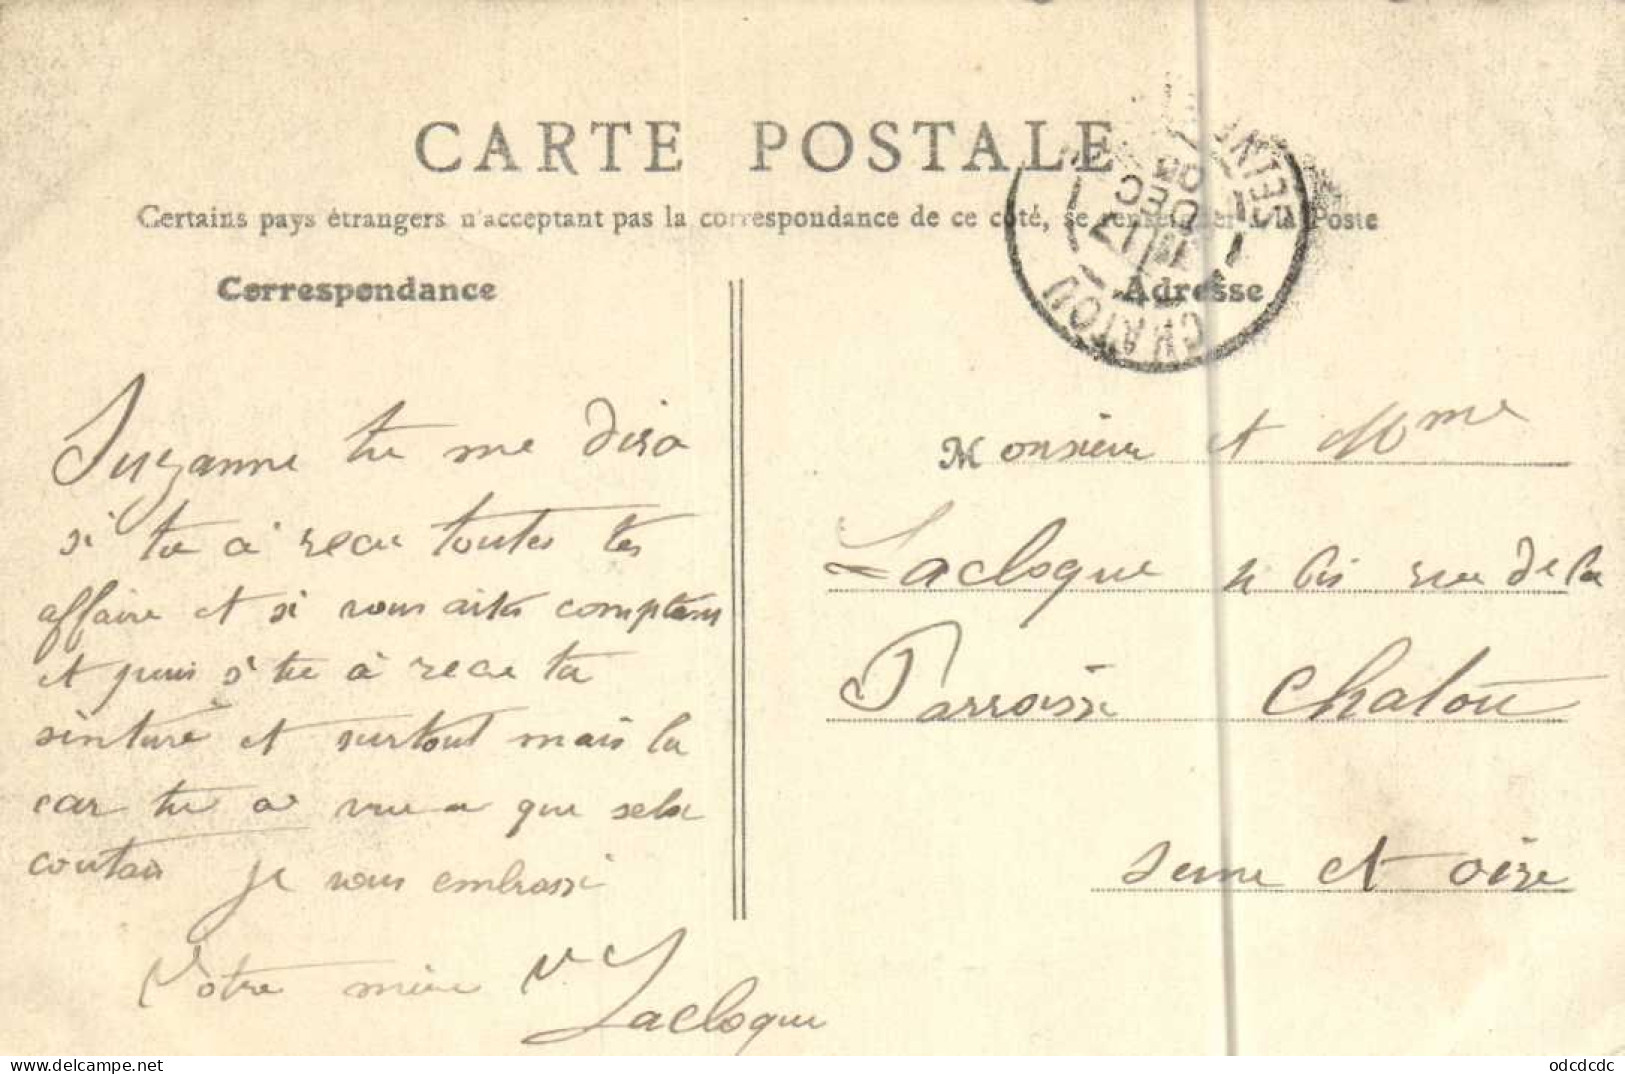 CARTE POSTALE
Certains pays étrangers n'acceptant pas la correspondance de ce côté, se renseigner à la Poste
Correspondance
Adresse
CHATOU
SEINE
17
DEC
08
Suzanne tu me dira
si tu a recu toutes tes
affaire et si vous aites comptens
et puis si tu à recu ta
sinture et surtout mais la
car tu a vue a que sela
coutais je vous embrasse
Votre mère Vve
Lacloque
Monsieur et Mme
Lacloque 11 bis rue de la
Parroisse Chatou
Seine et Oise
delcampe.net
odcdcdc